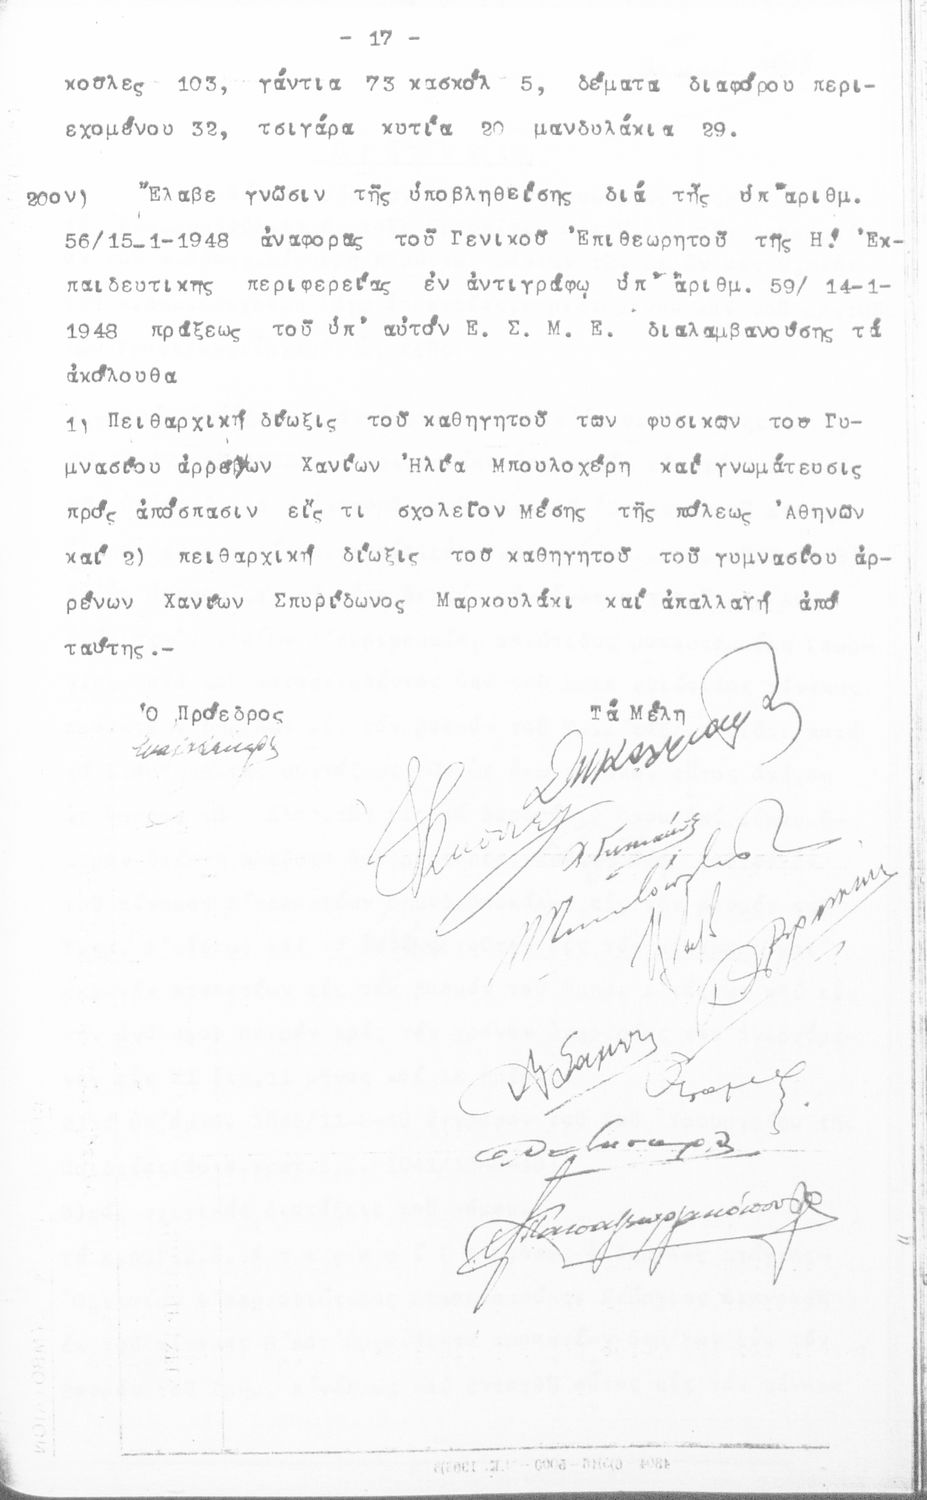 - 17 -
κοῦλες 103, γάντια 73 κασκόλ 5, δέματα διαφόρου περι-
εχομένου 32, τσιγάρα κυτία 20 μανδυλάκια 29.
20ον) Ἔλαβε γνῶσιν τῆς ὑποβληθείσης διά τῆς ὑπ' ἀριθμ.
56/15-1-1948 ἀναφορᾶς τοῦ Γενικοῦ Ἐπιθεωρητοῦ τῆς Η! Ἐκ-
παιδευτικῆς περιφερείας ἐν ἀντιγράφῳ ὑπ' ἀριθμ. 59/ 14-1-
1948 πράξεως τοῦ ὑπ' αὐτόν Ε. Σ. Μ. Ε. διαλαμβανούσης τά
ἀκόλουθα
1) Πειθαρχική δίωξις τοῦ καθηγητοῦ τῶν φυσικῶν τοῦ Γυ-
μνασίου ἀρρένων Χανίων Ἠλία Μπουλοχέρη καί γνωμάτευσις
πρός ἀπόσπασιν εἴς τι σχολεῖον Μέσης τῆς πόλεως Ἀθηνῶν
καί 2) πειθαρχική δίωξις τοῦ καθηγητοῦ τοῦ γυμνασίου ἀρ-
ρένων Χανίων Σπυρίδωνος Μαρκουλάκι καί ἀπαλλαγή ἀπό
ταύτης.-
Ὁ Πρόεδρος Τά Μέλη